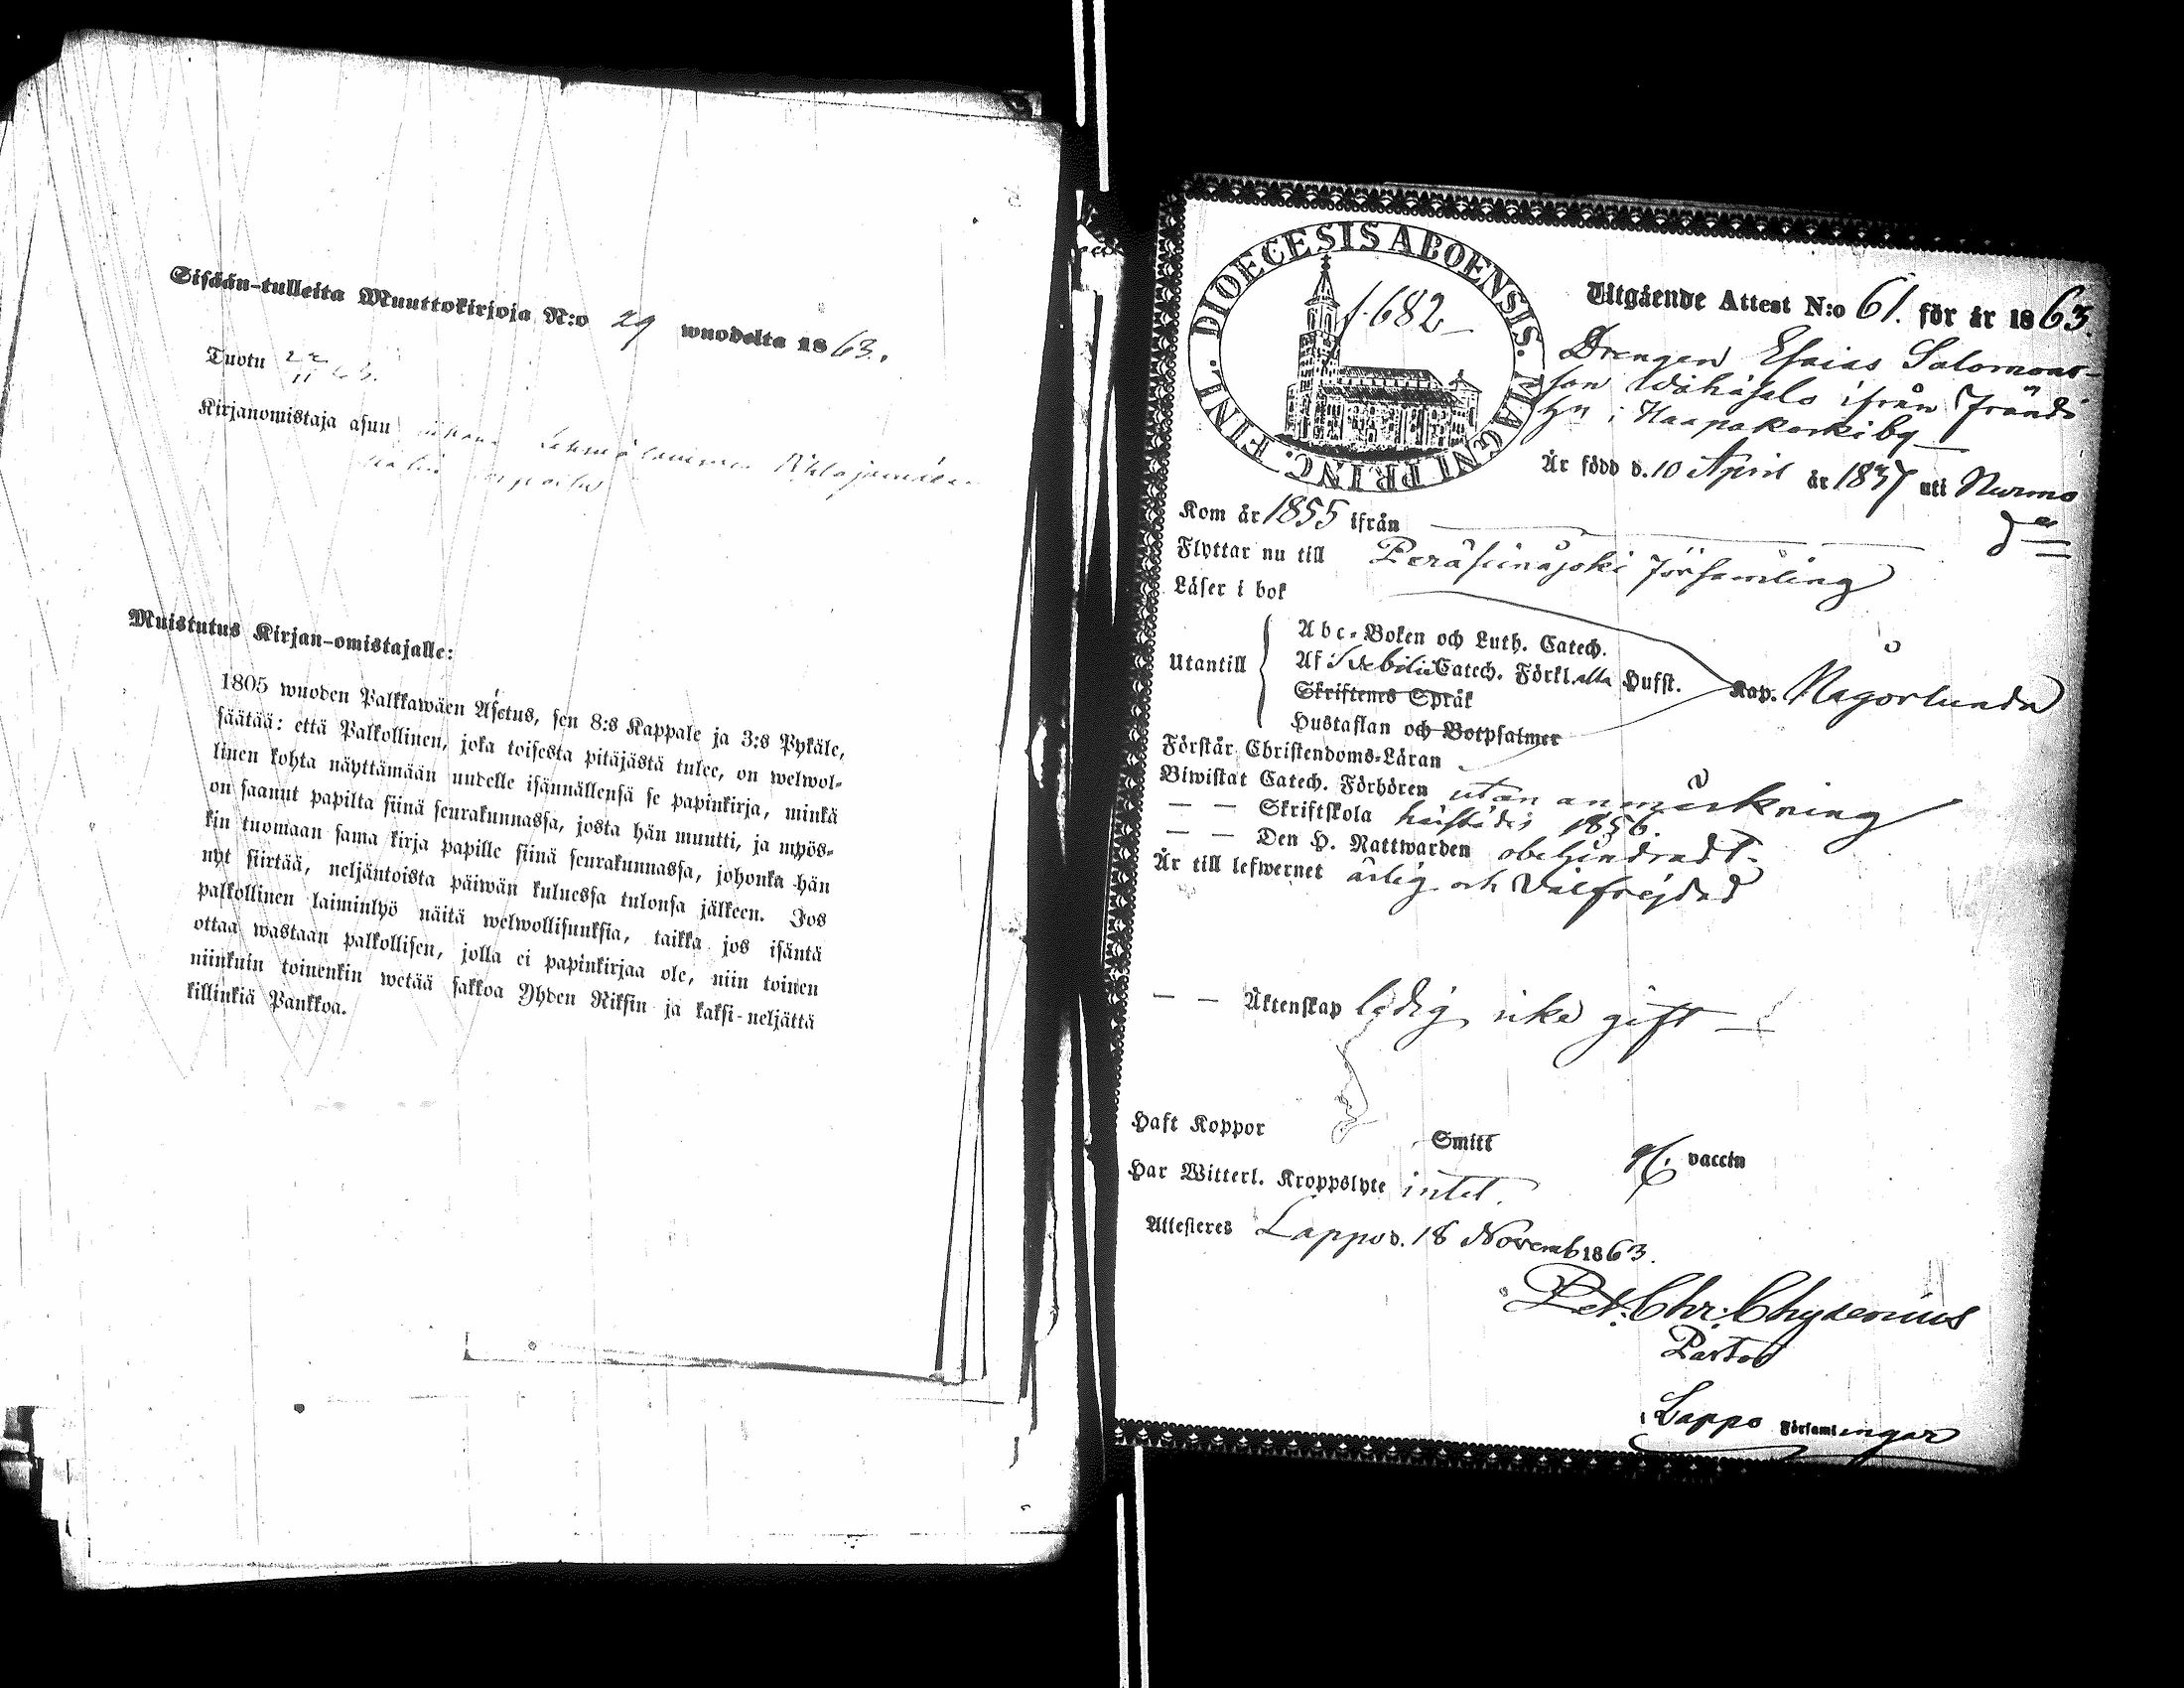 Sisään-tulleita Muuttokirjoja N:o 29 wuodelta 1863.
Tuotu 22/11 63.
Kirjanomistaja asuu
Muistutus Kirjan-omistajalle:
1805 wuoden Palkkawäen Asetus, sen 8:s Kappale ja 3:s Pykäle,
säätää: että Palkollinen, joka toisesta pitäjästä tulee, on welwol-
linen kohta näyttämään uudelle isännällensä se papinkirja, minkä
on saanut papilta siinä seurakunnassa, josta hän muutti, ja myös-
kin tuomaan sama kirja papille siinä seurakunnassa, johonka hän
nyt siirtää, neljäntoista päiwän kuluessa tulonsa jälkeen. Jos
palkollinen laiminlyö näitä welwollisuuksia, taikka jos isäntä
ottaa wastaan palkollisen, jolla ei papinkirjaa ole, niin toinen
niinkuin toinenkin wetää sakkoa Yhden Riksin ja kaksi-neljättä
killinkiä Pankkoa.
DIOECESIS ABOENSIS. MAGNI PRINC. FINL.
f. 682
Utgående Attest N:o 61. för år 1863.
Drengen Esaias Salomons-
son Wähäsalo ifrån Frändi
hn i Haapakoski by
Är född d. 10 April år 1837 uti Nurmo
Kom år 1855 ifrån
Flyttar nu till Peräseinäjoki församling
Läser i bok
Utantill
Abc-Boken och Luth. Catech.
Af Svebilii Catech. Förkl. alla Hufst.
Skriftenes Språk
Hustaflan och Botpsalmer
Kap. Någorlunda
Förstår Christendoms-Läran
Biwistat Catech. Förhören utan anmärkning
— — Skriftskola 1856.
— — Den H. Nattwarden obehindradt.
Är till lefwernet ärlig och välfrejdad
— — Äktenskap ledig, icke gift
Haft Koppor Smitt vaccin
Har Witterl. Kroppslyte intet.
Attesteres Lappo d. 18 Novemb 1863.
Pet. Chr. Chydenius
Pastor
i Lappo Församlingar